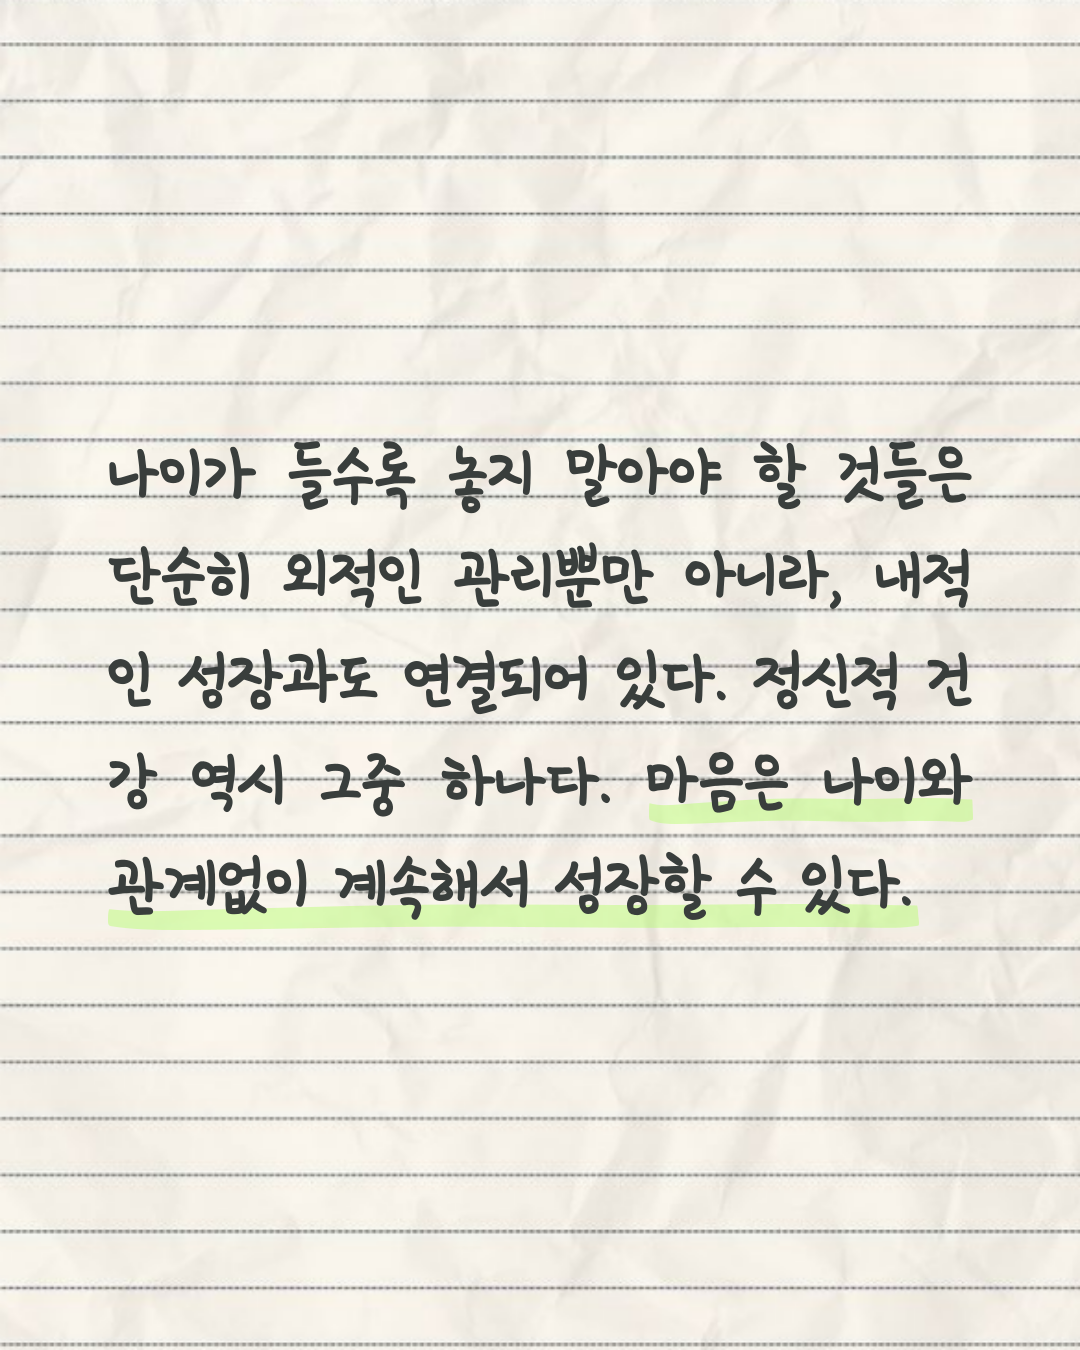 나이가 들수록 놓지 말아야 할 것들은
단순히 외적인 관리뿐만 아니라, 내적
인 성장과도 연결되어 있다. 정신적 건
강 역시 그중 하나다. 마음은 나이와
관계없이 계속해서 성장할 수 있다.